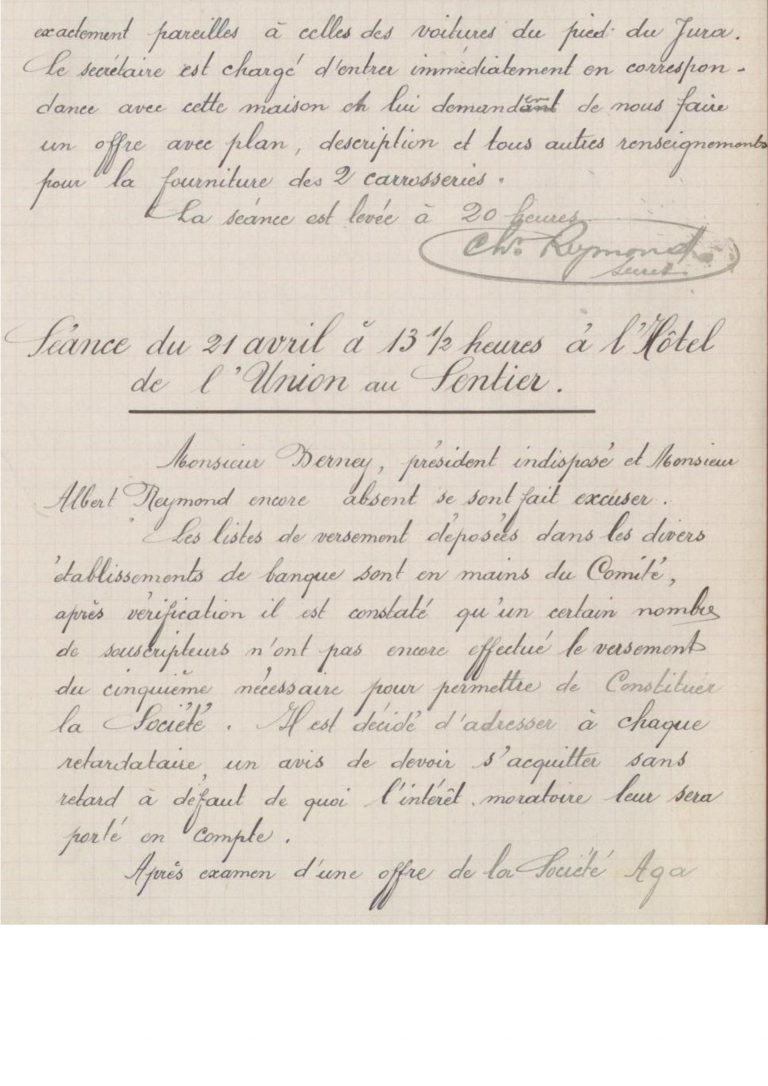 exactement pareilles à celles des voitures du pied du Jura.
Le secrétaire est chargé d'entrer immédiatement en correspon-
dance avec cette maison et lui demandant de nous faire
un offre avec plan, description et tous autres renseignements
pour la fourniture des 2 carrosseries.
La séance est levée à 20 heures
Chs Reymond
secret.
Séance du 21 avril à 13 1/2 heures à l'Hôtel
de l'Union au Sentier.
Monsieur Berney, président indisposé et Monsieur
Albert Reymond encore absent se sont fait excuser.
Les listes de versement déposées dans les divers
établissements de banque sont en mains du Comité,
après vérification il est constaté qu'un certain nombre
de souscripteurs n'ont pas encore effectué le versement
du cinquième nécessaire pour permettre de Constituer
la Société. Il est décidé d'adresser à chaque
retardataire un avis de devoir s'acquitter sans
retard à défaut de quoi l'intérêt moratoire leur sera
porté en compte.
Après examen d'une offre de la Société Aga